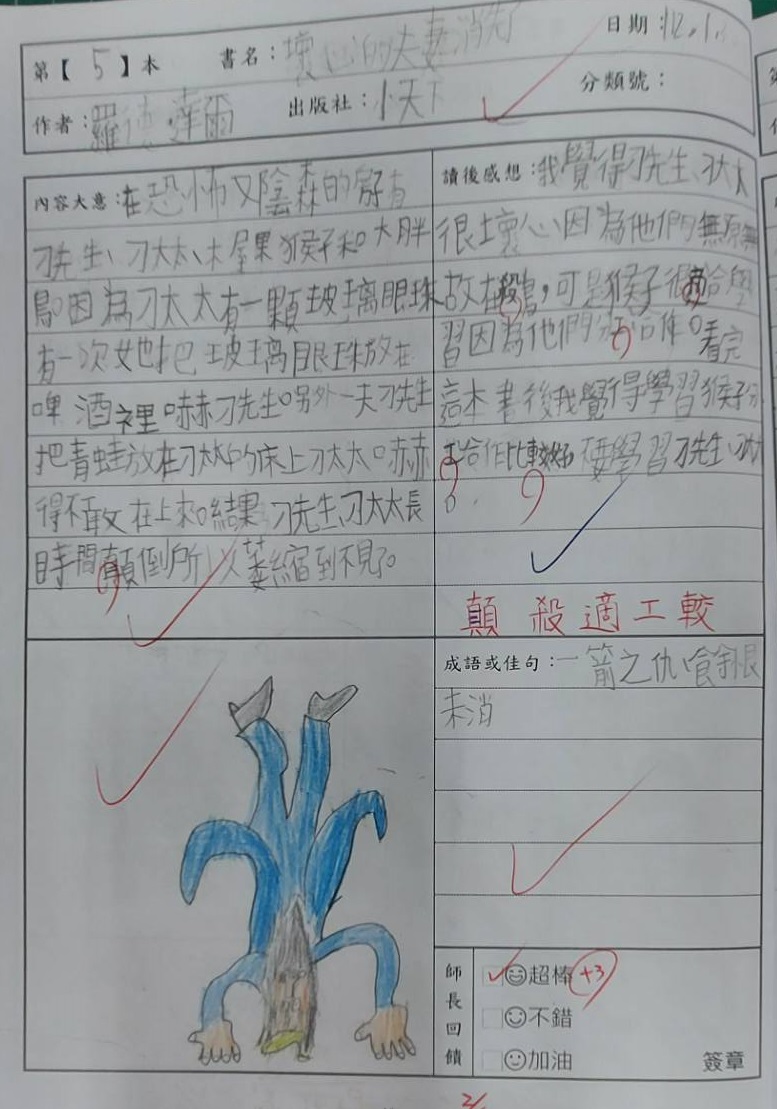 第【 5 】本 書名：壞心的夫妻消失了 日期：12.1.
作者：羅德.達爾 出版社：小天下 分類號：
內容大意：在恐怖又陰森的 有
刁先生、刁太太、木屋裏猴子和大胖
鳥因為刁太太有一顆玻璃眼珠
有一次她把玻璃眼珠放在
啤酒裡嚇刁先生。另外一天刁先生
把青蛙放在刁太太的床上刁太太嚇
得不敢在上來。結果刁先生、刁太太長
時間顛倒所以萎縮到不見了。
讀後感想：我覺得刁先生、刁太太
很壞心因為他們無原無
故在殺鳥，可是猴子很適合學
習因為他們分工合作。看完
這本書後我覺得學習猴子分
工合作比較好 要學習刁先生、刁太太
。
顛 殺 適 工 較
成語或佳句：一箭之仇、餘恨
未消
師長回饋
超棒 +3
不錯
加油
簽章